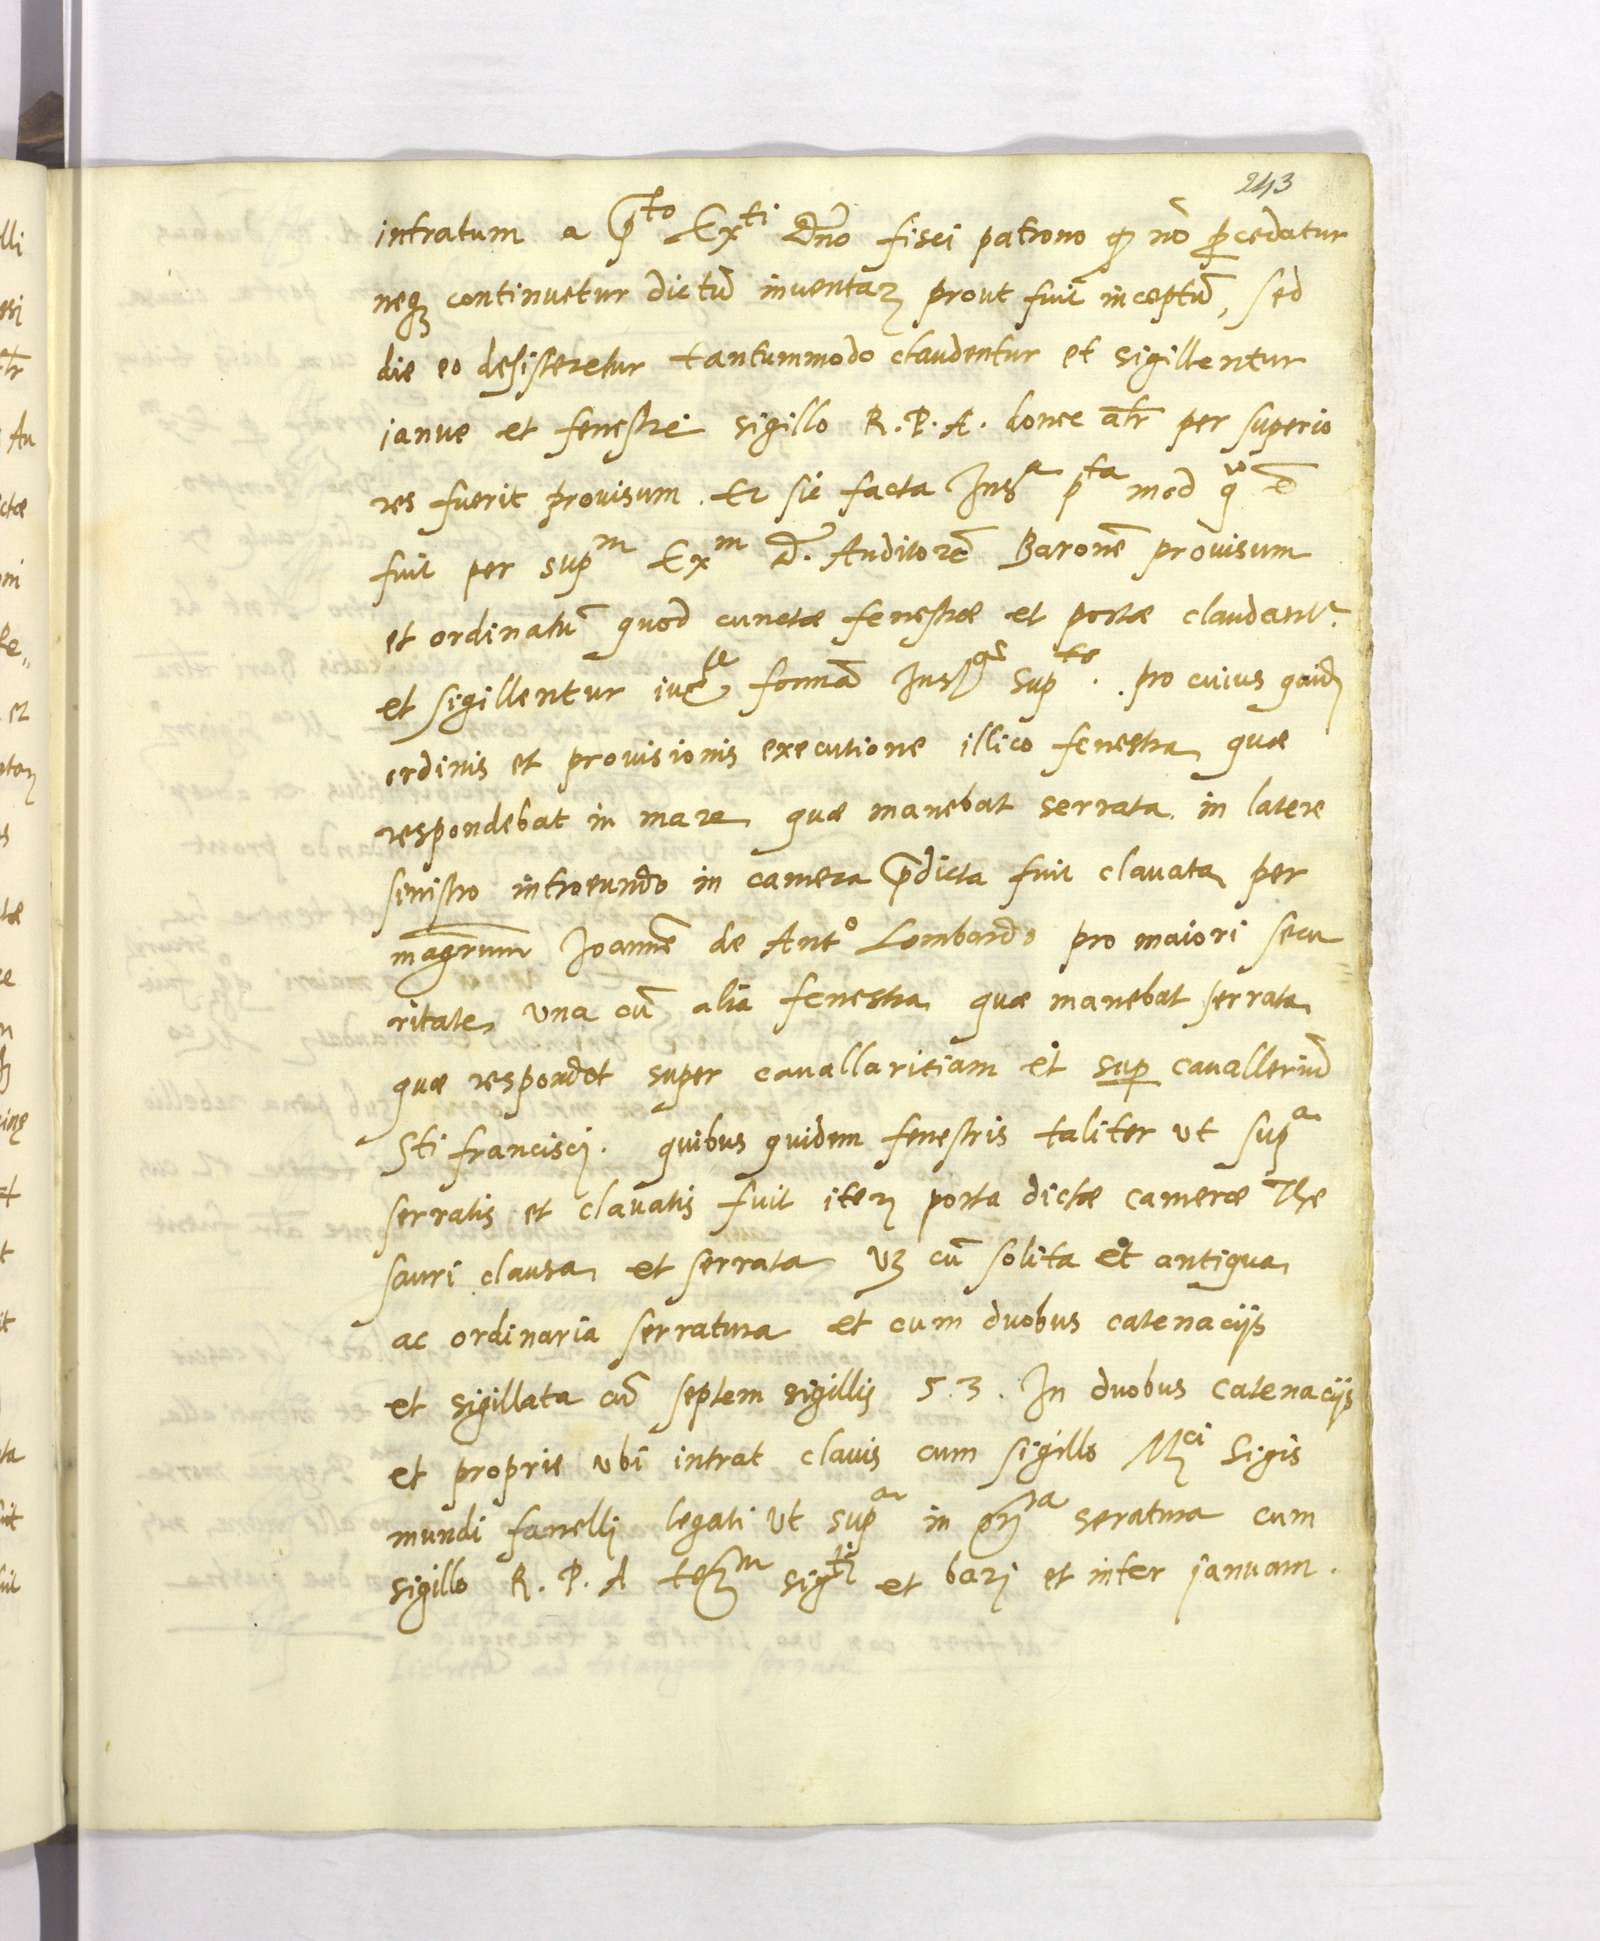 243
intratum a p̄to Exti Dn̄o fisci patrono q nō p̱cedatur
neq₃ continuetur dictū inventar̨ prout fuit inceptū, sed
die eo desisteretur tantummodo claudentur et sigillentur
ianue et fenestre sigillo R. P. A. donec atr̄ per superio
res fuerit provisum. Et sic facta Insa pta mod quo
fuit per supm Exm D. Auditorē Baronē provisum
et ordinatū quod cunctæ fenestræ et portæ claudantr
et sigillentur formā supte. pro cuius quid
ordinis et provisionis executione illico fenestra quæ
respondebat in mare quæ manebat serrata in latere
sinistro introeundo in camera p̄dicta fuit clavata per
magrum Joannē de Anto Lombardo pro maiori secu
ritate, una cū alia fenestra quæ manebat serrata
quæ respondet super cavallaritiam et sup cavalleriū
Sti francisci. quibus quidem fenestris taliter ut supa
serratis et clavatis fuit iter porta dictæ cameræ The
sauri clausa et serrata vz cū solita et antiqua
ac ordinaria serratura et cum duobus catenacijs
et sigillata cū septem sigillis 5. 3. In duobus catenacijs
et proprie ubi intrat clavis cum sigillo Mci Sigis
mundi fanelli legati ut supa in seratura cum
sigillo R. P. A sigti et barj et inter januam.